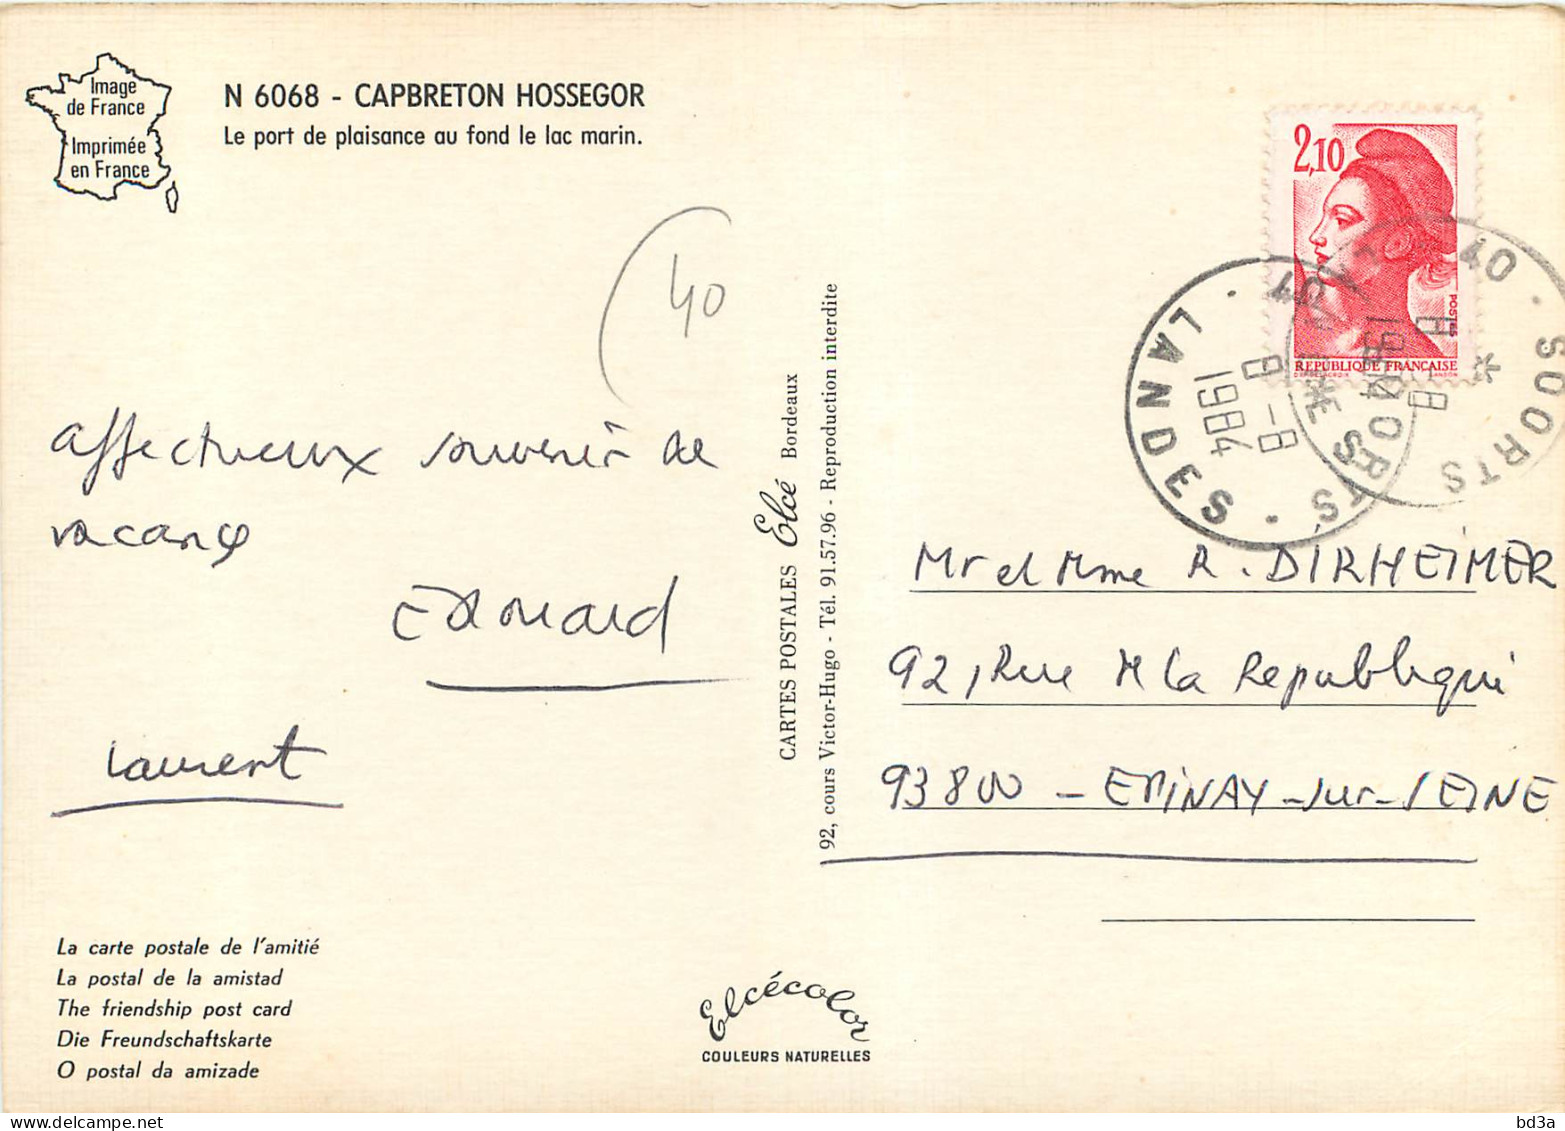 Image
de France
Imprimée
en France
N 6068 - CAPBRETON HOSSEGOR
Le port de plaisance au fond le lac marin.
2,10
POSTES
REPUBLIQUE FRANÇAISE
40 · SOORTS
LANDES
8-8
1984
40
affectueux souvenir de
vacance
Edouard
Laurent
CARTES POSTALES Elcé Bordeaux
92, cours Victor-Hugo - Tél. 91.57.96 - Reproduction interdite
Mr et Mme R. DIRHEIMER
92, Rue de la Republique
93800 - EPINAY-sur-SEINE
La carte postale de l'amitié
La postal de la amistad
The friendship post card
Die Freundschaftskarte
O postal da amizade
Elcécolor
COULEURS NATURELLES
bd3a